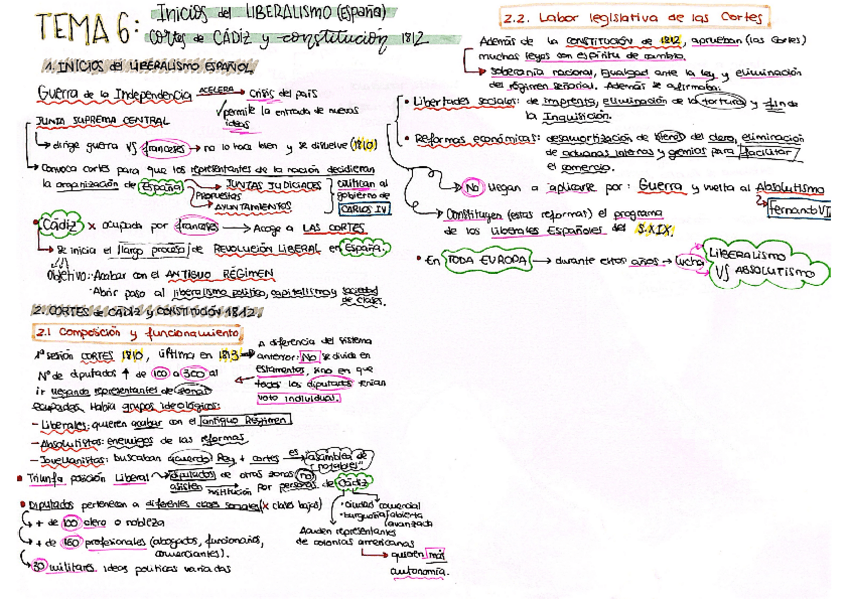 TEMA 6: Inicios del LIBERALISMO (España)
Cortes de CÁDIZ y constitución 1812
1. INICIOS del LIBERALISMO ESPAÑOL
Guerra de la Independencia ACELERA → Crisis del país
↓ permite la entrada de nuevas ideas
JUNTA SUPREMA CENTRAL
→ dirige guerra VS franceses → no lo hace bien y se disuelve (1810)
→ Convoca cortes para que los representantes de la nación decidieran
la organización de España → JUNTAS JUDICIALES
Propuestas
→ AYUNTAMIENTOS
critican al gobierno de CARLOS IV
• Cádiz x ocupada por franceses → Acoge a LAS CORTES
→ Se inicia el largo proceso de REVOLUCIÓN LIBERAL en España.
Objetivo: Acabar con el ANTIGUO RÉGIMEN
·Abrir paso al liberalismo político, capitalismo y sociedad de clases.
2. CORTES de CÁDIZ y CONSTITUCIÓN 1812.
2.1 Composición y funcionamiento
1ª sesión CORTES 1810, última en 1813 →
A diferencia del sistema anterior: No se divide en estamentos, sino en que todos los diputados tenían voto individual.
Nº de diputados ↑ de 100 a 300 al
ir llegando representantes de zonas
ocupadas. Había grupos ideológicos:
- Liberales: quieren acabar con el antiguo Régimen
- Absolutistas: enemigos de las reformas.
- Jovellanistas: buscaban acuerdo Rey + cortes es → "asamblea de notables"
• Triunfa posición Liberal → diputados de otras zonas no
asisten sustitución → por personas de Cádiz
· ciudad comercial
· burguesía abierta avanzada
• Diputados pertenecen a diferentes clases sociales (x clases bajas)
→ + de 100 clero o nobleza
→ + de 160 profesionales (abogados, funcionarios, comerciantes).
→ 30 militares. ideas políticas variadas
Acuden representantes
de colonias americanas
→ quieren más autonomía.
2.2. Labor legislativa de las Cortes
Además de la CONSTITUCIÓN de 1812, aprueban (las Cortes)
muchas leyes con espíritu de cambio.
→ soberanía nacional, igualdad ante la ley y eliminación
del régimen señorial. Además se afirmaba:
• Libertades sociales: de imprenta, eliminación de la tortura y fin de
la Inquisición.
• Reformas económicas: desamortización de bienes del clero, eliminación
de aduanas internas y gremios para facilitar
el comercio.
→ No llegan a aplicarse por: Guerra y vuelta al Absolutismo
→ Fernando VII
→ Constituyen (estas reformas) el programa
de los Liberales Españoles del S.XIX.
• En TODA EUROPA → durante estos años → lucha LIBERALISMO
VS ABSOLUTISMO